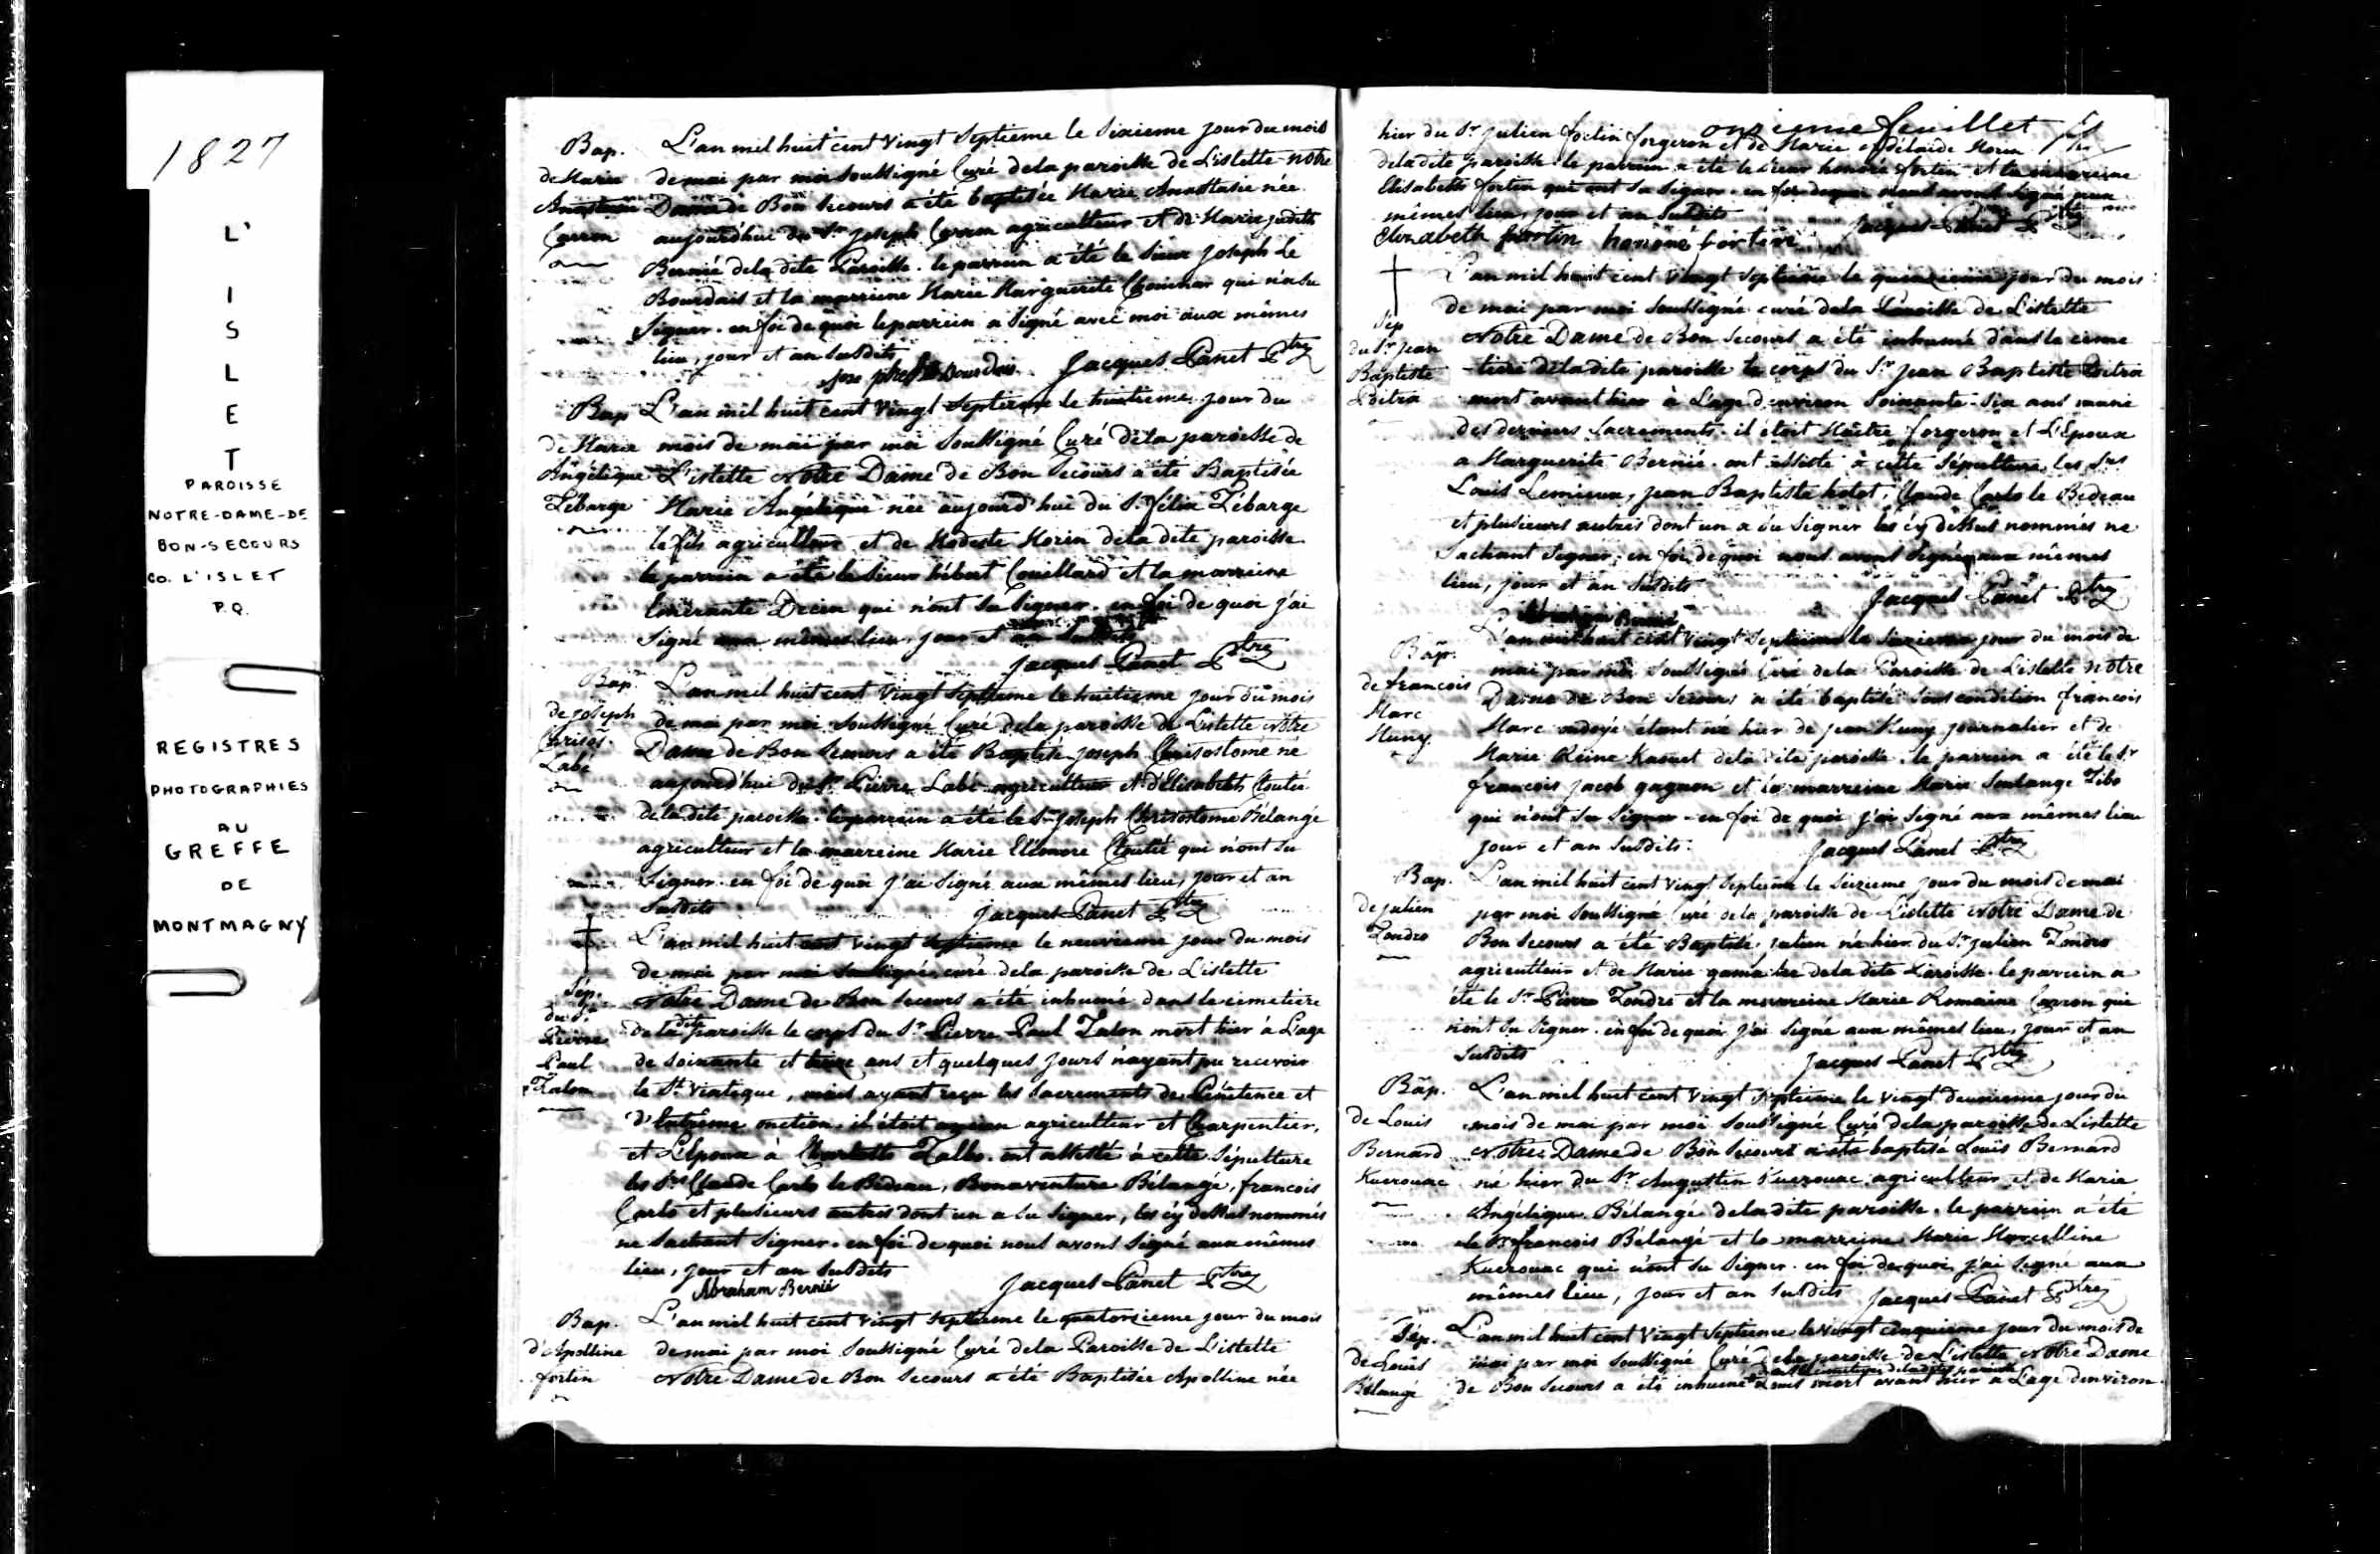 1827
L'
I
S
L
E
T
PAROISSE
NOTRE-DAME-DE
BON-SECOURS
CO. L'ISLET
P.Q.
REGISTRES
PHOTOGRAPHIES
AU
GREFFE
DE
MONTMAGNY
Bap.
de Marie
Anastasie
Carron
L'an mil huit cent vingt septieme le sixieme jour du mois
de mai par moi soussigné Curé de la paroisse de L'islette notre
Dame de Bon secours a été baptisée Marie Anastasie née
aujourdhui du Sr joseph Carron agriculteur et de Marie judith
Bernié de la dite Paroisse. le parrein a été le sieur joseph Le
Bourdais et la marreine Marie Marguerite Chouinar qui n'a su
signer. en foi de quoi le parrein a signé avec moi aux mêmes
lieu, jour et an susdits
Jacques Panet Ptre
Bap
de Marie
Angélique
Lébarge
L'an mil huit cent vingt septieme le huitieme jour du
mois de mai par moi soussigné Curé de la paroisse de
L'islette Notre Dame de Bon Secours a été Baptisée
Marie Angélique née aujourd'hui du Sr félix Lébarge
le fils agriculteur et de Modeste Morin de la dite paroisse
le parrein a été le sieur hébert Couillard et la marreine
Emérante Drein qui n'ont su signer. en foi de quoi j'ai
signé aux mêmes lieu, jour et an susdits
Jacques Panet Ptre
Bap.
de joseph
Crisos.
Labé
L'an mil huit cent vingt septieme le huitieme jour du mois
de mai par moi soussigné Curé de la paroisse de L'islette Notre
Dame de Bon Secours a été Baptisé joseph Chrisostome né
aujourd'hui du Sr Pierre Labé agriculteur et d'Elisabeth Cloutié
de la dite paroisse. le parrein a été le Sr joseph Chrisostome Bélangé
agriculteur et la marreine Marie Elléonore Cloutié qui n'ont su
signer. en foi de quoi j'ai signé aux mêmes lieu, jour et an
susdits
Jacques Panet Ptre
Sép.
du Sr
Pierre
Paul
Talon
L'an mil huit cent vingt septieme le neuvieme jour du mois
de mai par moi soussigné, curé de la paroisse de L'islette
Notre Dame de Bon Secours a été inhumé dans le cimetiere
de la dite paroisse le corps du Sr Pierre Paul Talon mort hier à L'age
de soixante et ans et quelques jours n'ayant pu recevoir
le St Viatique, mais ayant reçu les sacrements de Pénitence et
d'Extreme onction. il étoit agriculteur et Charpentier,
et L'Epoux à Charlotte Talbo. ont assisté à cette Sépulture
les Srs Claude Carlo le Bédeau, Bonaventure Bélange, francois
Carlo et plusieurs autres dont un a su signer, les cy dessus nommés
ne sachant signer. en foi de quoi nous avons signé aux mêmes
lieu, jour et an susdits
Abraham Bernié
Jacques Panet Ptre
Bap.
d'Apolline
fortin
L'an mil huit cent vingt septieme le quatorzieme jour du mois
de mai par moi soussigné Curé de la Paroisse de L'islette
Notre Dame de Bon Secours a été Baptisée Apolline née
onzieme feuillet
hier du Sr julien fortin forgeron et de Marie Adélaide Morin
de la dite paroisse. le parrein a été le sieur honoré fortin et la marreine
Elisabeth fortin qui ont su signer. en foi de quoi nous avons signé aux
mêmes lieu, jour et an susdits
Jacques Panet Ptre
Elizabeth fortin honoré fortin
Sep
du Sr jean
Baptiste
Poitra
L'an mil huit cent vingt septieme le quinzieme jour du mois
de mai par moi soussigné curé de la Paroisse de L'islette
Notre Dame de Bon Secours a été inhumé dans le cime
tiere de la dite paroisse le corps du Sr jean Baptiste Poitra
mort avant hier à L'age d'environ soixante-six ans muni
des derniers sacrements. il étoit Maitre forgeron et L'Epoux
a Marguerite Bernié. ont assisté à cette Sépulture les Srs
Louis Lemieux, jean Baptiste hotot, Claude Carlo le Bedeau
et plusieurs autres dont un a su signer les cy dessus nommés ne
sachant signer, en foi de quoi nous avons signé aux mêmes
lieu, jour et an susdits
Jacques Panet Ptre
Bap.
de francois
Marc
L'an mil huit cent vingt septieme le seizieme jour du mois de
mai par moi soussigné Curé de la Paroisse de L'islette notre
Dame de Bon Secours a été baptisé sous condition francois
Marc ondoyé étant né hier de jean journalier et de
Marie Reine Kaouet de la dite paroisse. le parrein a été le Sr
francois jacob gagnon et la marreine Marie Soulange Tibo
qui n'ont su signer. en foi de quoi j'ai signé aux mêmes lieu
jour et an susdits.
Jacques Panet Ptre
Bap.
de julien
Londro
L'an mil huit cent vingt septieme le seizieme jour du mois de mai
par moi soussigné Curé de la paroisse de L'islette Notre Dame de
Bon Secours a été Baptisé julien né hier du Sr julien Londro
agriculteur et de Marie de la dite Paroisse. le parrein a
été le Sr Pierre Londro et la marreine Marie Romaine Carron qui
n'ont su signer. en foi de quoi j'ai signé aux mêmes lieu, jour et an
susdits
Jacques Panet Ptre
Bap.
de Louis
Bernard
Kuerouac
L'an mil huit cent vingt septieme le vingt deuxieme jour du
mois de mai par moi soussigné Curé de la paroisse de L'islette
Notre Dame de Bon Secours a été baptisé Louis Bernard
né hier du Sr Augustin Kuerouac agriculteur et de Marie
Angélique Bélangé de la dite paroisse. le parrein a été
le Sr francois Bélangé et la marreine Marie Marcelline
Kuerouac qui n'ont su signer. en foi de quoi j'ai signé aux
mêmes lieu, jour et an susdits
Jacques Panet Ptre
Sép.
de Louis
Bélangé
L'an mil huit cent vingt septieme le vingt cinquieme jour du mois de
mai par moi soussigné Curé de la paroisse de L'islette Notre Dame
dans le cimetiere de la dite paroisse
de Bon Secours a été inhumé Louis mort avant hier a L'age d'environ